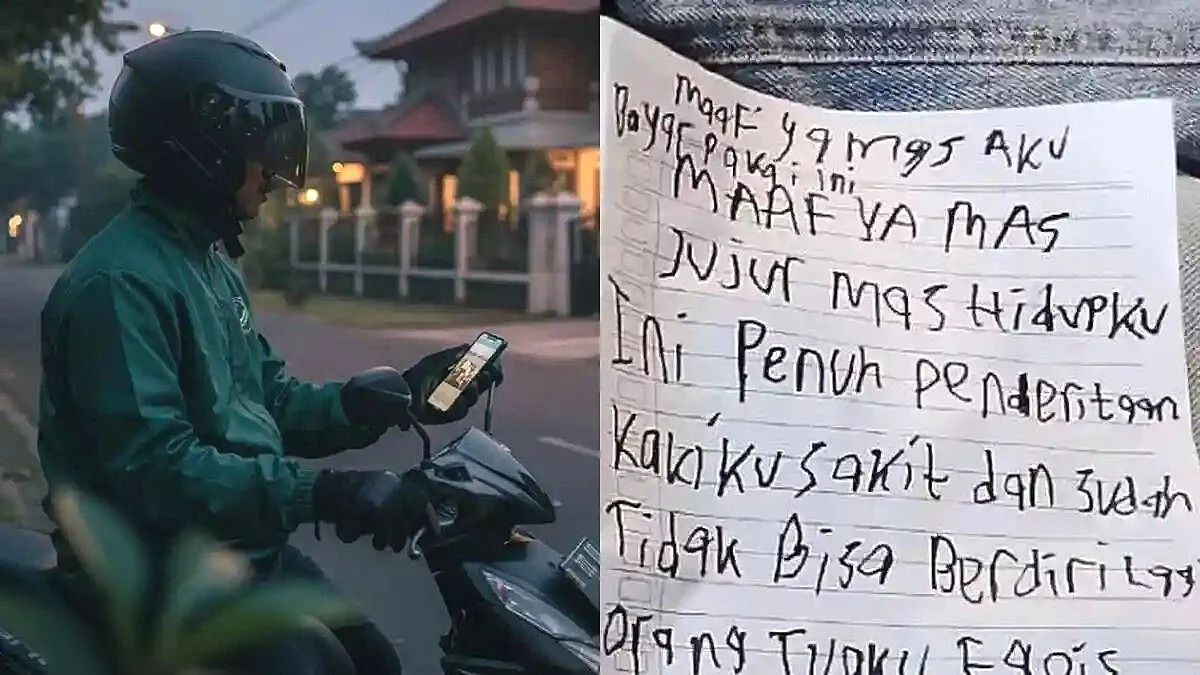 maaF ya mas AKU
Bayar pakai ini
MAAF YA MAS
JUJUr mas HidupKu
Ini Penuh penderitaan
KakiKu sakit dan sudah
Tidak Bisa Berdiri Lagi
Orang TUaKU Egois